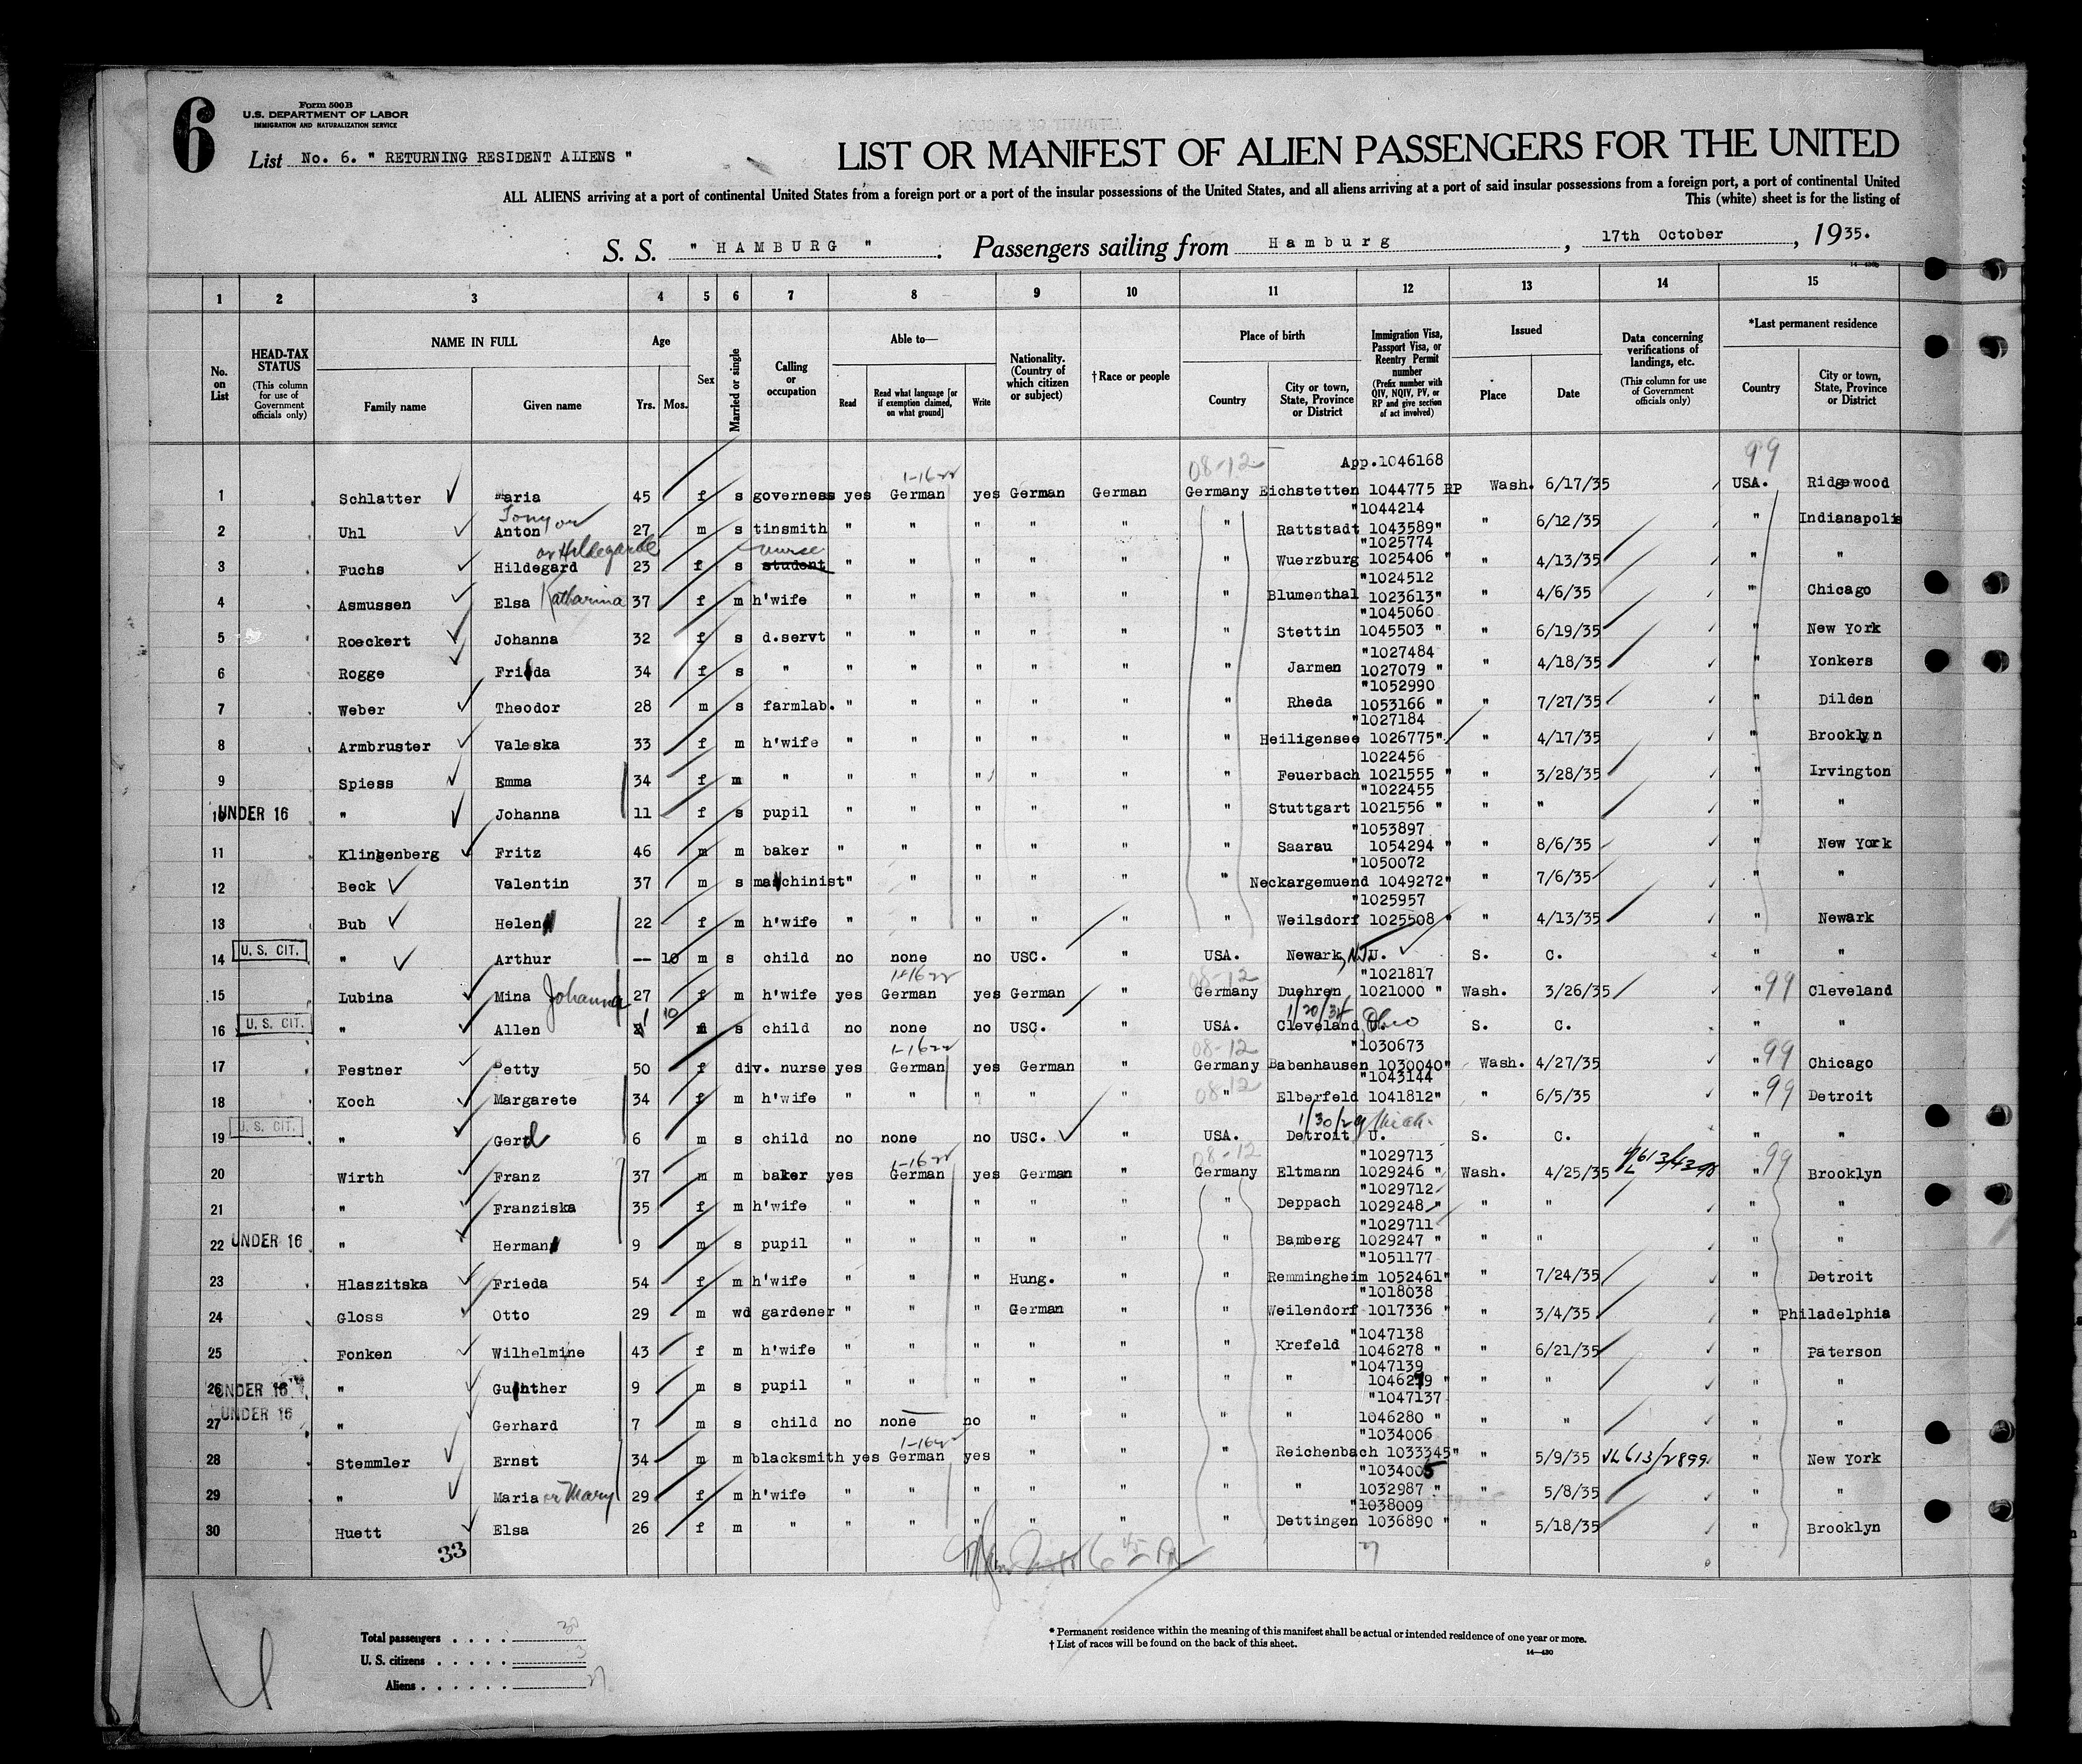 6
Form 500B
U.S. DEPARTMENT OF LABOR
IMMIGRATION AND NATURALIZATION SERVICE
List No. 6. " RETURNING RESIDENT ALIENS "
LIST OR MANIFEST OF ALIEN PASSENGERS FOR THE UNITED
ALL ALIENS arriving at a port of continental United States from a foreign port or a port of the insular possessions of the United States, and all aliens arriving at a port of said insular possessions from a foreign port, a port of continental United
This (white) sheet is for the listing of
S. S. " HAMBURG ". Passengers sailing from Hamburg, 17th October, 1935.
1 2 3 4 5 6 7 8 9 10 11 12 13 14 15
No. on List
HEAD-TAX STATUS (This column for use of Government officials only)
NAME IN FULL Family name Given name
Age Yrs. Mos.
Sex
Married or single
Calling or occupation
Able to— Read Read what language [or if exemption claimed, on what ground] Write
Nationality. (Country of which citizen or subject)
†Race or people
Place of birth Country City or town, State, Province or District
Immigration Visa, Passport Visa, or Reentry Permit number (Prefix number with QIV, NQIV, PV, or RP and give section of act involved)
Issued Place Date
Data concerning verifications of landings, etc. (This column for use of Government officials only)
*Last permanent residence Country City or town, State, Province or District
1-1622 08-12 App.1046168 99
1 Schlatter Maria 45 f s governess yes German yes German German Germany Eichstetten 1044775 RP Wash. 6/17/35 USA. Ridgewood
Tony or "1044214
2 Uhl Anton 27 m s tinsmith " " " " " " Rattstadt 1043589" " 6/12/35 " Indianapolis
or Hildegarde nurse "1025774
3 Fuchs Hildegard 23 f s student " " " " " " Wuerzburg 1025406 " " 4/13/35 " "
"1024512
4 Asmussen Elsa Katharina 37 f m h'wife " " " " " " Blumenthal 1023613" " 4/6/35 " Chicago
"1045060
5 Roeckert Johanna 32 f s d.servt " " " " " " Stettin 1045503 " " 6/19/35 " New York
"1027484
6 Rogge Frida 34 f s " " " " " " " Jarmen 1027079 " " 4/18/35 " Yonkers
"1052990
7 Weber Theodor 28 m s farmlab. " " " " " " Rheda 1053166 " " 7/27/35 " Dilden
"1027184
8 Armbruster Valeska 33 f m h'wife " " " " " " Heiligensee 1026775" " 4/17/35 " Brooklyn
1022456
9 Spiess Emma 34 f m " " " " " " " Feuerbach 1021555 " " 3/28/35 " Irvington
"1022455
10 UNDER 16 " Johanna 11 f s pupil " " " " " " Stuttgart 1021556 " " " " "
"1053897
11 Klingenberg Fritz 46 m m baker " " " " " " Saarau 1054294 " " 8/6/35 " New York
"1050072
12 Beck Valentin 37 m s machinist " " " " " " Neckargemuend 1049272" " 7/6/35 " "
"1025957
13 Bub Helen 22 f m h'wife " " " " " " Weilsdorf 1025508 " " 4/13/35 " Newark
14 U. S. CIT. " Arthur -- 10 m s child no none no USC. " USA. Newark, N.J. U. S. C. " "
1-1622 08-12 "1021817
15 Lubina Mina Johanna 27 f m h'wife yes German yes German " Germany Duehren 1021000 " Wash. 3/26/35 " 99 Cleveland
1/20/34
16 U. S. CIT. " Allen 1 10 m s child no none no USC. " USA. Cleveland Ohio U. S. C. " "
1-1622 08-12 "1030673
17 Festner Betty 50 f div. nurse yes German yes German " Germany Babenhausen 1030040" Wash. 4/27/35 " 99 Chicago
08-12 "1043144
18 Koch Margarete 34 f m h'wife " " " " " " Elberfeld 1041812" " 6/5/35 " 99 Detroit
1/30/29 Mich.
19 U. S. CIT. " Gerd 6 m s child no none no USC. " USA. Detroit U. S. C. " "
1-1622 08-12 "1029713
20 Wirth Franz 37 m m baker yes German yes German " Germany Eltmann 1029246 " Wash. 4/25/35 " 99 Brooklyn
"1029712
21 " Franziska 35 f m h'wife " " " " " " Deppach 1029248 " " " " "
"1029711
22 UNDER 16 " Herman 9 m s pupil " " " " " " Bamberg 1029247 " " " " "
"1051177
23 Hlaszitska Frieda 54 f m h'wife " " " Hung. " " Remmingheim 1052461" " 7/24/35 " Detroit
"1018038
24 Gloss Otto 29 m wd gardener " " " German " " Weilendorf 1017336 " " 3/4/35 " Philadelphia
"1047138
25 Fonken Wilhelmine 43 f m h'wife " " " " " " Krefeld 1046278 " " 6/21/35 " Paterson
"1047139
26 UNDER 16 " Gunther 9 m s pupil " " " " " " " 1046279 " " " " "
"1047137
27 UNDER 16 " Gerhard 7 m s child no none no " " " " 1046280 " " " " "
1-1622 "1034006
28 Stemmler Ernst 34 m m blacksmith yes German yes " " " Reichenbach 1033345" " 5/9/35 VL613/2899 " New York
"1034005
29 " Maria or Mary 29 f m h'wife " " " " " " " 1032987 " " 5/8/35 " "
"1038009
30 Huett Elsa 26 f m " " " " " " " Dettingen 1036890 " " 5/18/35 " Brooklyn
33
Total passengers . . . . 30
U. S. citizens . . . . . 3
Aliens . . . . . . 27
* Permanent residence within the meaning of this manifest shall be actual or intended residence of one year or more.
† List of races will be found on the back of this sheet.
14—430